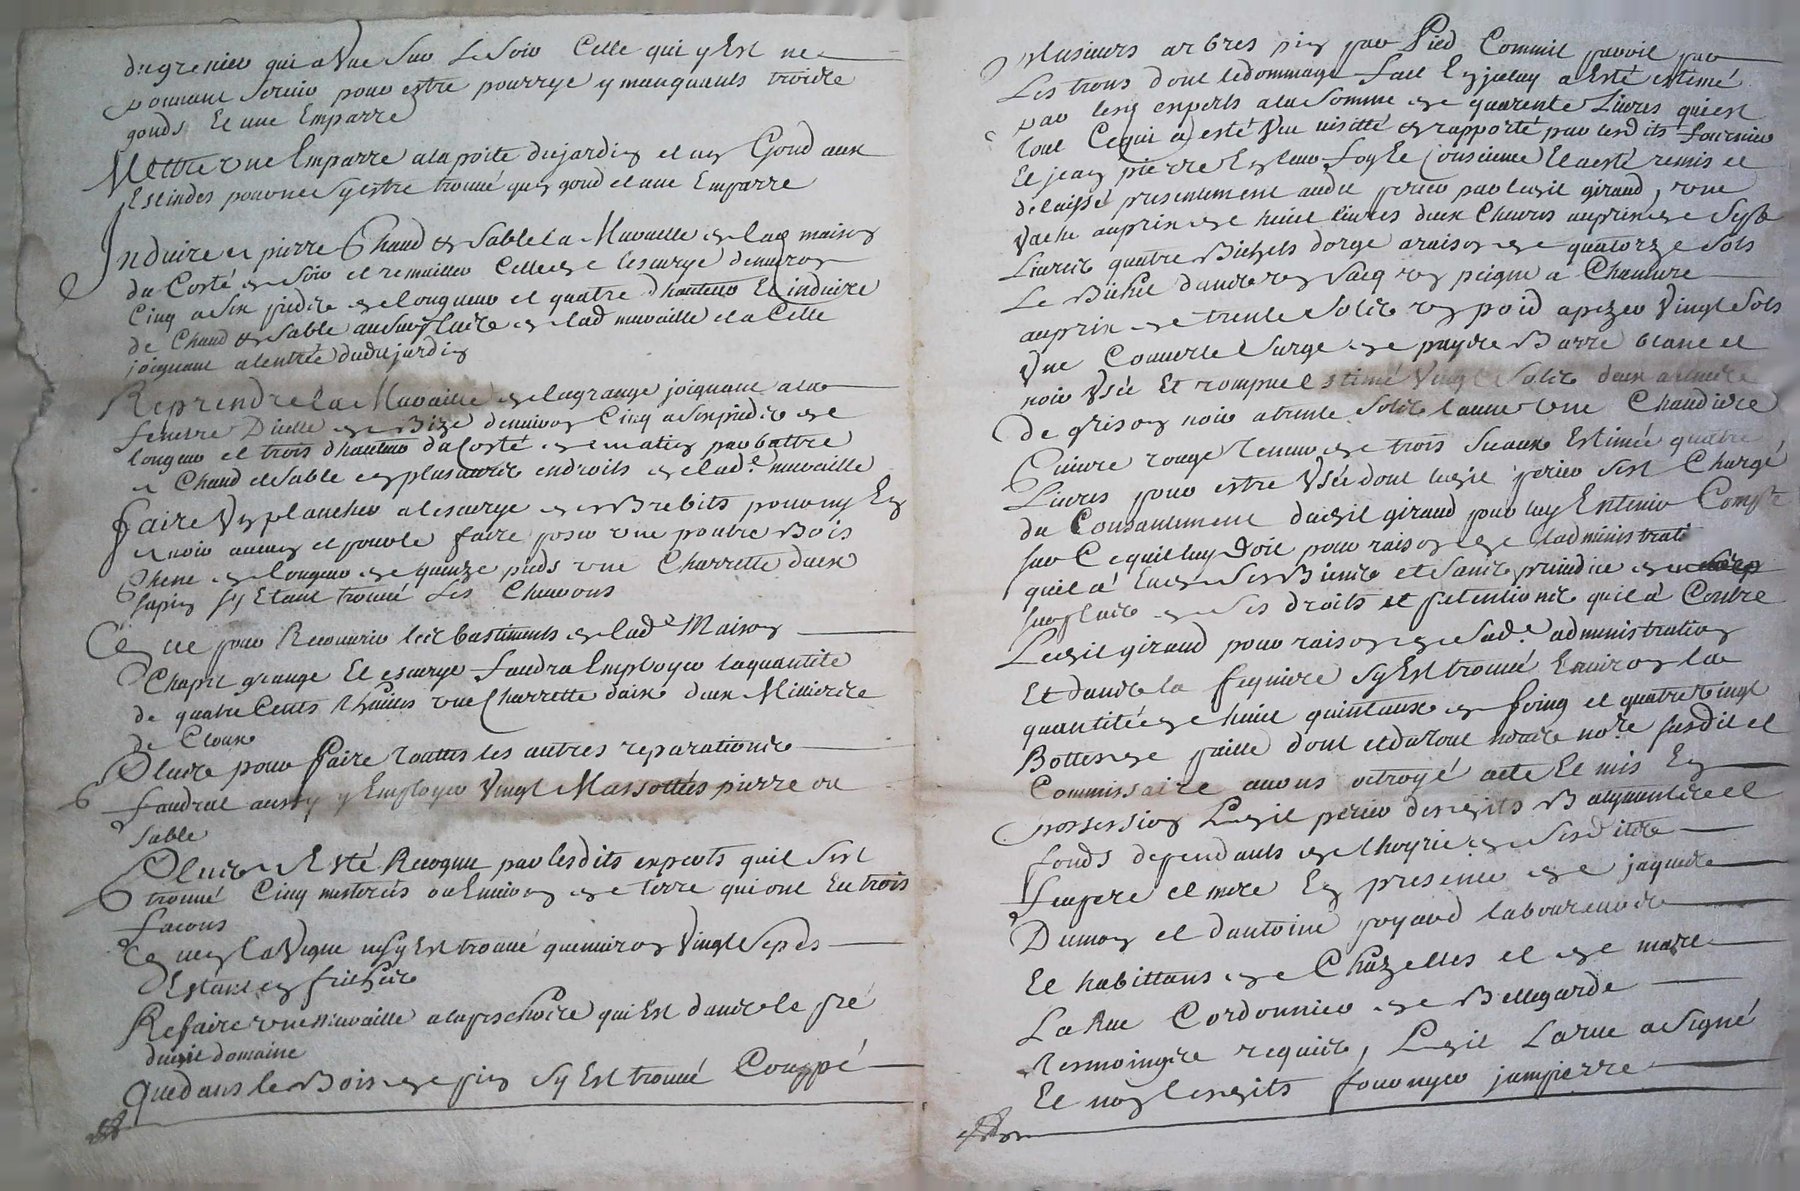 du grenier qui a Vue Sur Le Soir Celle qui y Est ne
pouvant Servir pour estre pourrye y manquants trois
gonds Et une Emparre
Mettre une Emparre a la porte du jardin et un Gond aux
Estindes pour ne sy estre trouvé qu'un gond et une Emparre
Induire en pierre Chaud & Sable la Muraille de lad maison
du Costé de Soir et remailler Celle de lescurye denviron
Cinq a Six pieds de longueur et quatre dhauteur Et induire
de Chaud & Sable au Surplus de lad muraille et a Celle
joignant a lentrée dudit jardin
Reprendre la Muraille de la grange joignant a la
fenetre Dicelle de Bize denviron Cinq a Six pieds de
longueur et trois dhauteur du Costé de matin pour battre
a Chaud et Sable en plusieurs endroits de lad.e muraille
faire Un plancher a lescurye des Brebits pour ny En
avoir aucun et pour le faire poser une poutre Bois
Chene de longueur de quinze pieds une Charrette daix
sapin sy Etant trouvé Les Chevrons
Et que pour Recouvrir les bastiments de lad.e Maison
Chapit grange Et escurye faudra Employer la quantité
de quatre Cents thuiles une Charrette daix deux Milliers
de Cloux
Plus pour faire Touttes les autres reparations
faudrat aussy y Employer Vingt Massottées pierre ou
Sable
Plus a Esté Recognu par lesdits experts quil Sest
trouvé Cinq mesterées ou Environ de terre qui ont Eu trois
facons
Et quen la Vigne il ny sy Est trouvé quenviron Vingt Seps
Estant en friches
Refaire une muraille a la peschoire qui Est dans le pré
dudit domaine
Que dans le Bois de pin Sy Est trouvé Couppé
plusieurs arbres pin par Pied Comme paroit par
Les trons dont le dommage fait En jceluy a Esté estimé
par lesd experts a la Somme de quarente Livres qui est
tout Ce qui a esté Vu visitté & rapporté par lesdits fournier
Et jean pierre En leur foy Et Consience Et a esté remis et
delaissé presentement audit perier par ledit giraud, une
Vache au prix de huit livres deux Chevres au prix de Six
Livres quatre Bichets dorge a raison de quatorze Sols
Le Bichet dans un Sacq un peigne a Chanvre
au prix de trente Sols un poid a pezer Vingt Sols
Une Couverte Sarge de payis Barre blanc et
noir Usée Et rompue Estimé Vingt Sols deux aulnes
De grison noir a trente Sols laune une Chaudiere
Cuivre rouge Tenant trois Seaux Estimée quatre
Livres pour estre Usée dont ledit perier sest Chargé
du Consentement dudit giraud pour luy En tenir Compte
sur Ce quil luy doit pour raison de ladministrati
quil a Eu de Ses Biens et Sans prejudice
surplus de Ses droits et pretentions quil a Contre
Ledit giraud pour raison de Sad.e administration
Et dans la feniere Sy Est trouvé Environ la
quantité de huit quintaux de foing et quatre vingt
Bottes de paille dont et du tout nous no.re susdit et
Commissaire avons octroyé acte Et mis En
possession Ledit perier desdits Batiments et
fonds dependants de lhoyrie de Sesdits
feu pere et mere En presence de jaques
Dumon et dantoine poyard laboureurs
Et habittans de Chazelles et de marc
La Rue Cordonnier de Bellegarde
Tesmoings requis, Ledit Larue a Signé
Et non lesdits fournyer jean pierre